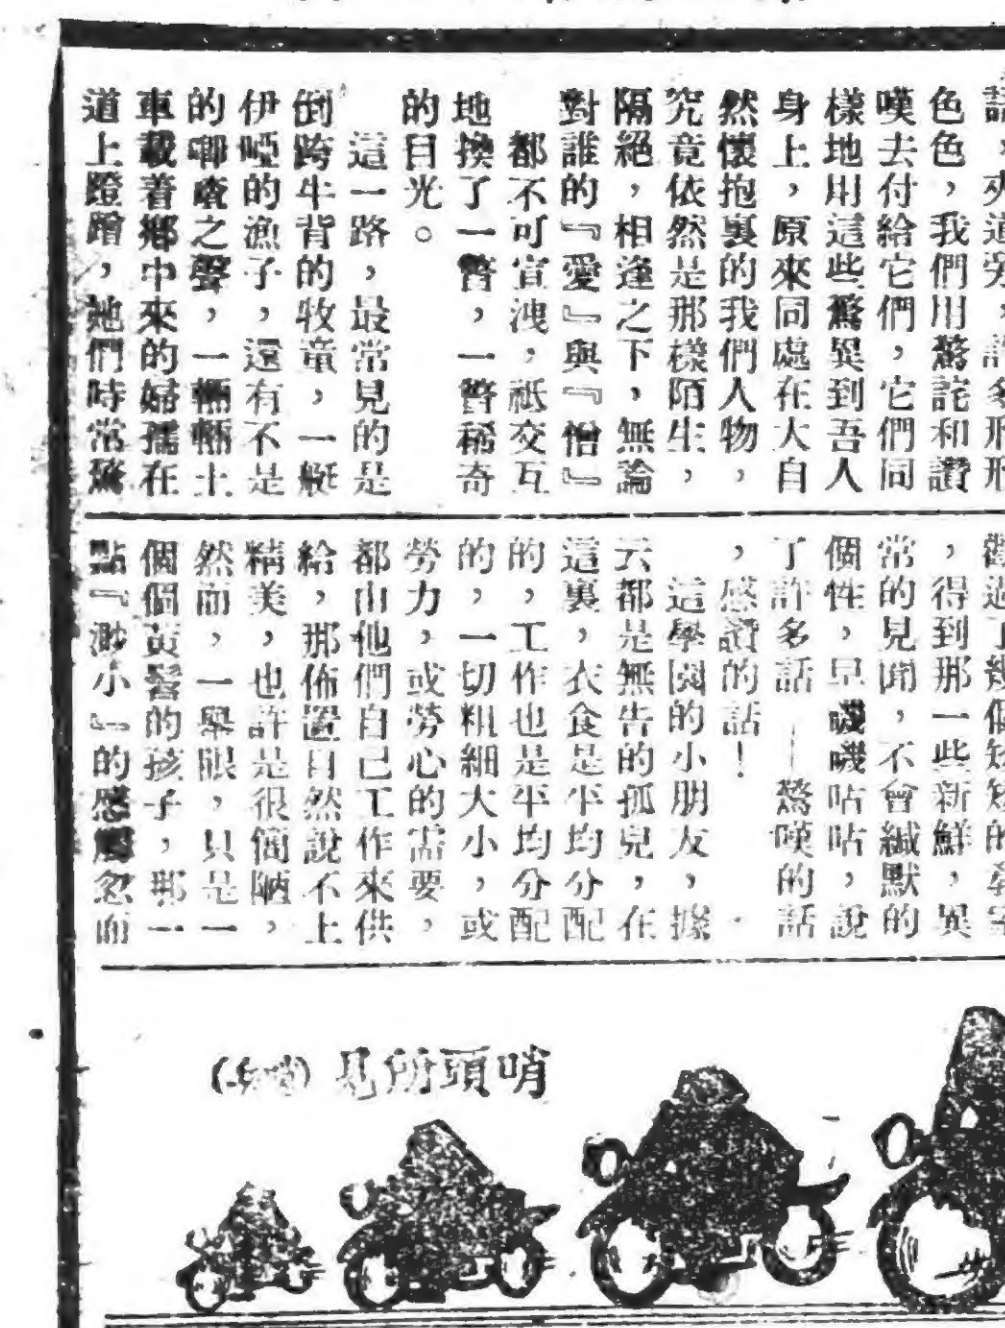 色色，我們用驚詫和讚
嘆去付給它們，它們同
樣地用這些驚異到吾人
身上，原來同處在大自
然懷抱裏的我們人物，
究竟依然是那樣陌生，
隔絕，相逢之下，無論
對誰的『愛』與『憎』
都不可宣洩，祇交互
地換了一瞥，一瞥稀奇
的目光。
這一路，最常見的是
倒跨牛背的牧童，一艇
伊啞的漁子，還有不是
的唧嗟之聲，一輛輛土
車載着鄉中來的婦孺在
道上蹬蹭，她們時常驚
，得到那一些新鮮，異
常的見聞，不會緘默的
個性，早磯磯咕咕，說
了許多話——驚嘆的話
，感讚的話！
這學園的小朋友，據
云都是無告的孤兒，在
這裏，衣食是平均分配
的，工作也是平均分配
的，一切粗細大小，或
勞力，或勞心的需要，
都由他們自己工作來供
給，那佈置自然說不上
精美，也許是很簡陋，
然而，一舉眼，只是一
個個黃髫的孩子，那一
點『渺小』的感觸忽而
哨頭所見